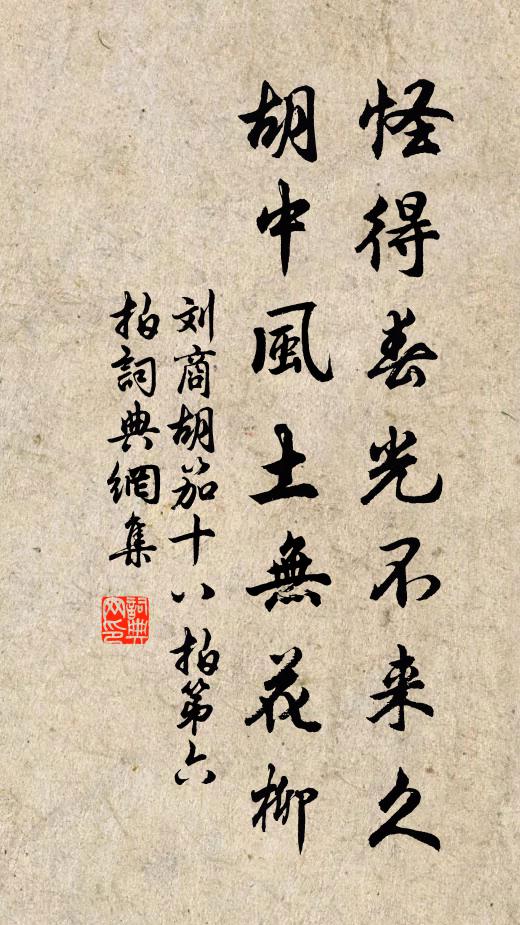 怪得春光不来久
胡中風土無花柳
刘商胡笳十八拍第六
拍詞典網集
詞典网印